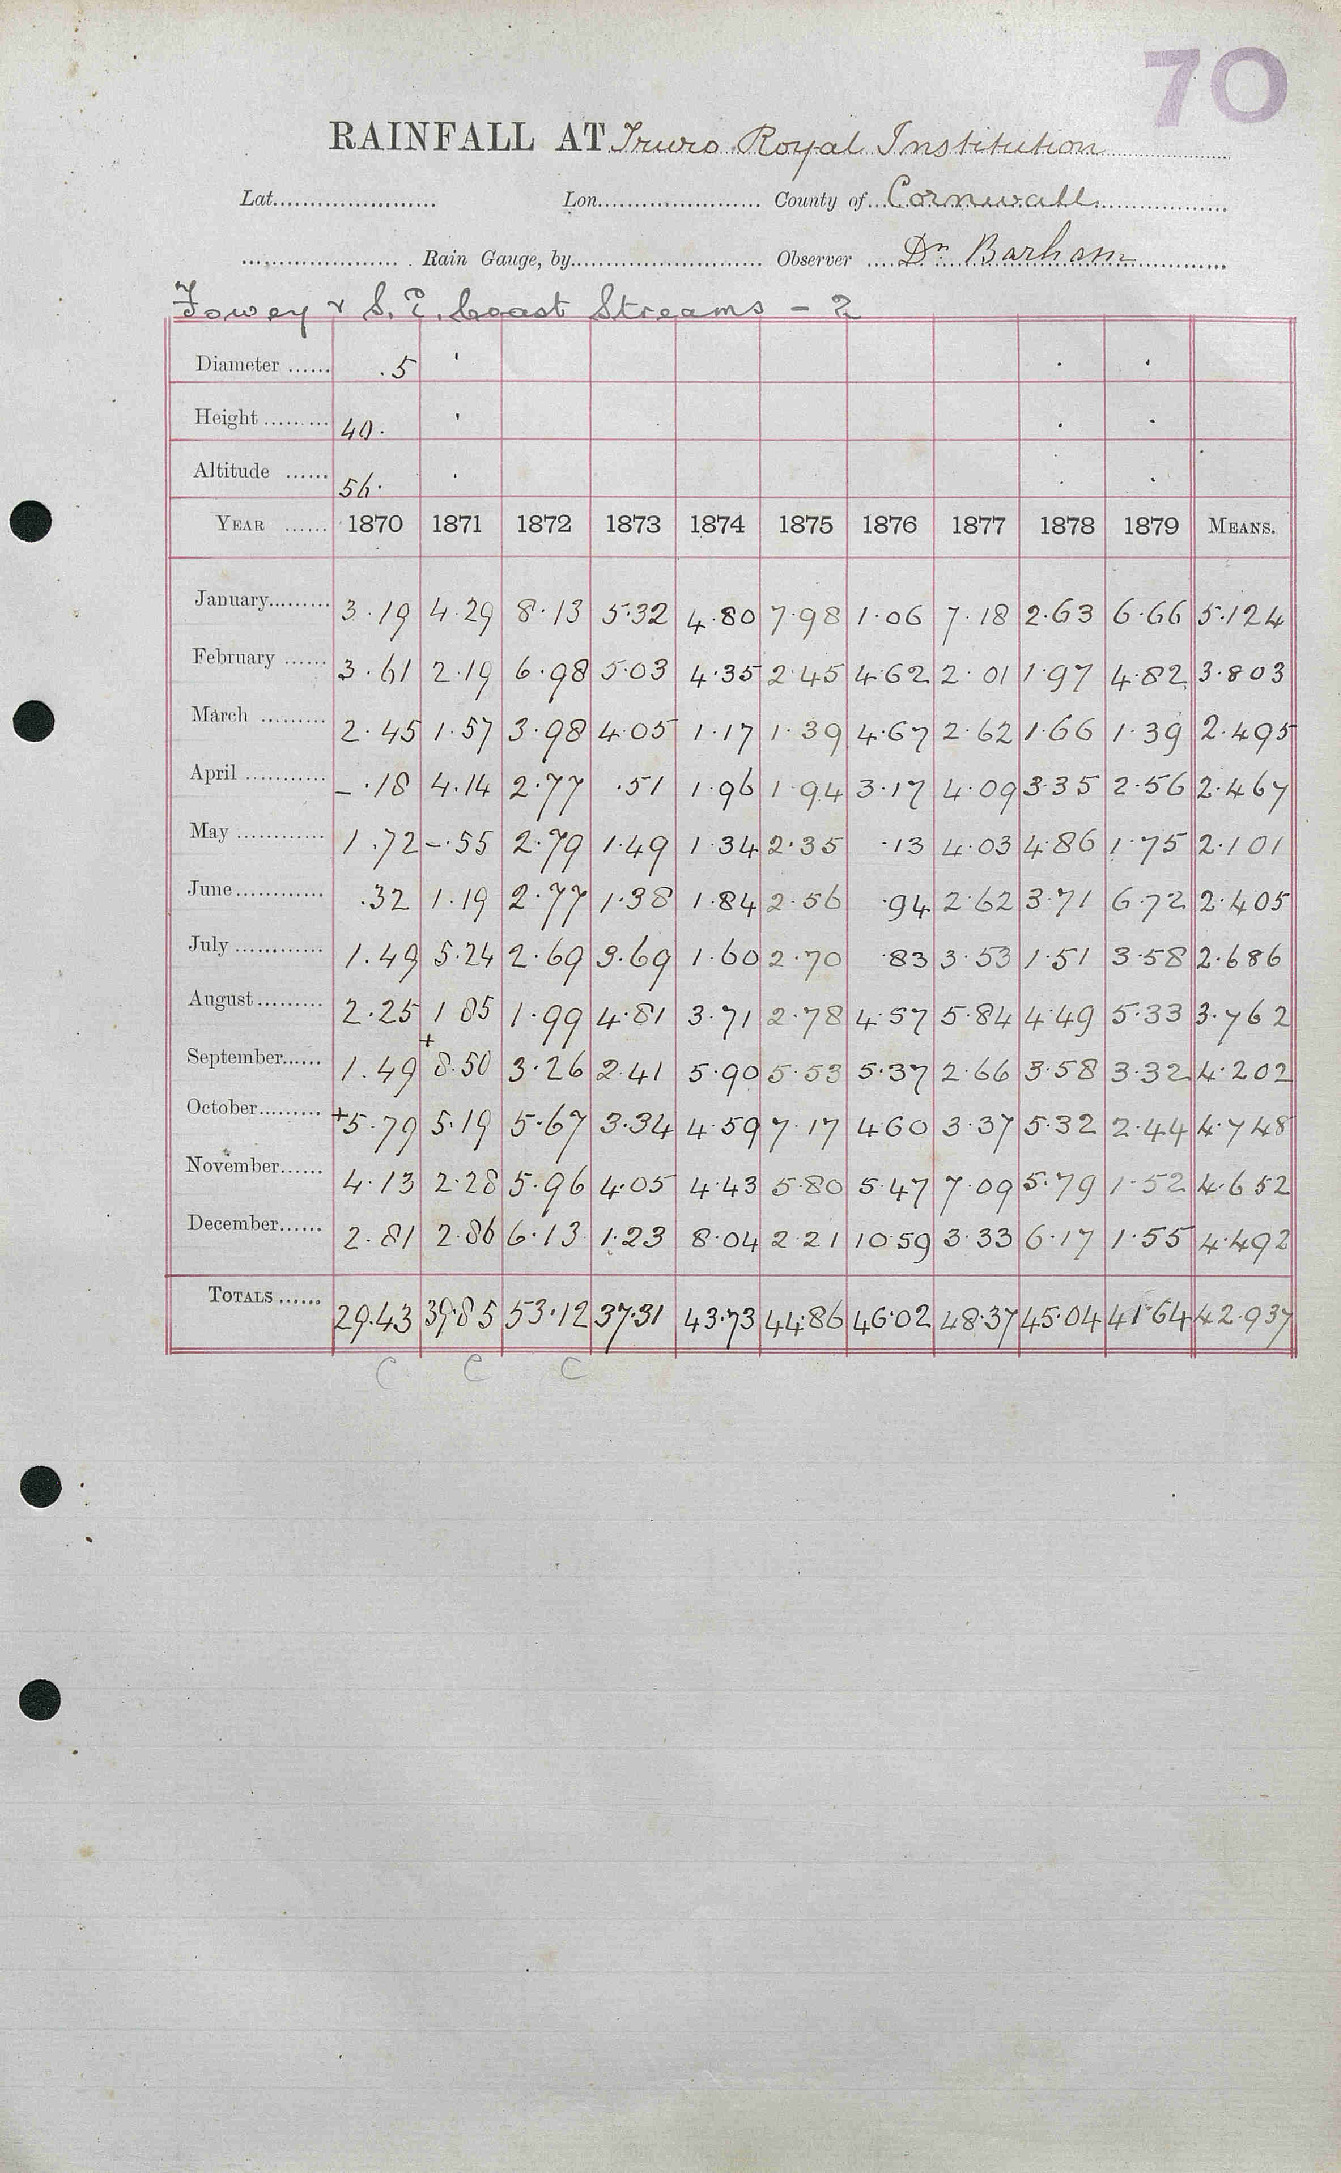 70
RAINFALL AT Truro Royal Institution
Lat. Lon. County of Cornwall
Rain Gauge, by Observer Dr Barham
Fowey & S. E. Coast Streams - 2
Diameter ...... .5
Height ......... 40.
Altitude ...... 56.
YEAR ...... 1870 1871 1872 1873 1874 1875 1876 1877 1878 1879 MEANS.
January......... 3.19 4.29 8.13 5.32 4.80 7.98 1.06 7.18 2.63 6.66 5.124
February ...... 3.61 2.19 6.98 5.03 4.35 2.45 4.62 2.01 1.97 4.82 3.803
March ......... 2.45 1.57 3.98 4.05 1.17 1.39 4.67 2.62 1.66 1.39 2.495
April ............ -.18 4.14 2.77 .51 1.96 1.94 3.17 4.09 3.35 2.56 2.467
May ............ 1.72 -.55 2.79 1.49 1.34 2.35 .13 4.03 4.86 1.75 2.101
June............ .32 1.19 2.77 1.38 1.84 2.56 .94 2.62 3.71 6.72 2.405
July ............ 1.49 5.24 2.69 3.69 1.60 2.70 .83 3.53 1.51 3.58 2.686
August......... 2.25 1.85 1.99 4.81 3.71 2.78 4.57 5.84 4.49 5.33 3.762
September...... 1.49 +8.50 3.26 2.41 5.90 5.53 5.37 2.66 3.58 3.32 4.202
October......... +5.79 5.19 5.67 3.34 4.59 7.17 4.60 3.37 5.32 2.44 4.748
November...... 4.13 2.28 5.96 4.05 4.43 5.80 5.47 7.09 5.79 1.52 4.652
December...... 2.81 2.86 6.13 1.23 8.04 2.21 10.59 3.33 6.17 1.55 4.492
TOTALS ...... 29.43 39.85 53.12 37.31 43.73 44.86 46.02 48.37 45.04 41.64 42.937
C C C